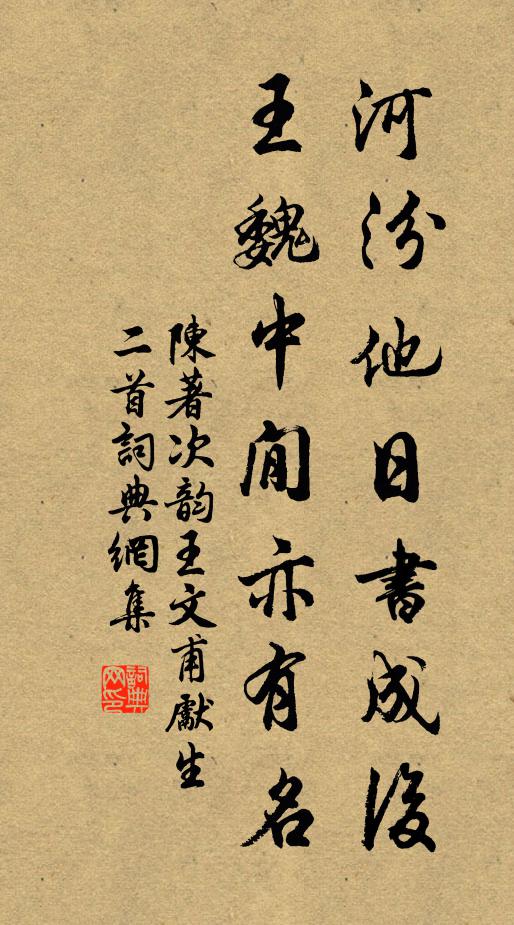 河汾他日書成後
王魏中間亦有名
陳著次韵王文甫獻生
二首詞典網集
詞典网印